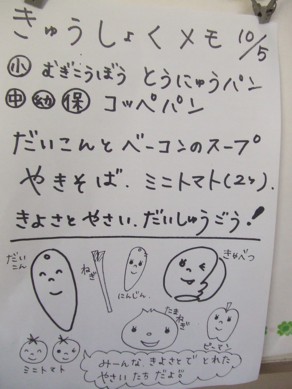 きゅうしょくメモ 10/5
小 むぎこうぼう とうにゅうパン
中 幼 保 コッペパン
だいこんとベーコンのスープ
やきそば. ミニトマト(2ヶ).
きよさとやさい.だいしゅうごう!
だいこん
ねぎ
にんじん
きゃべつ
たまねぎ
ピーマン
ミニトマト
みーんな きよさとで とれた
やさいたちだよ♪